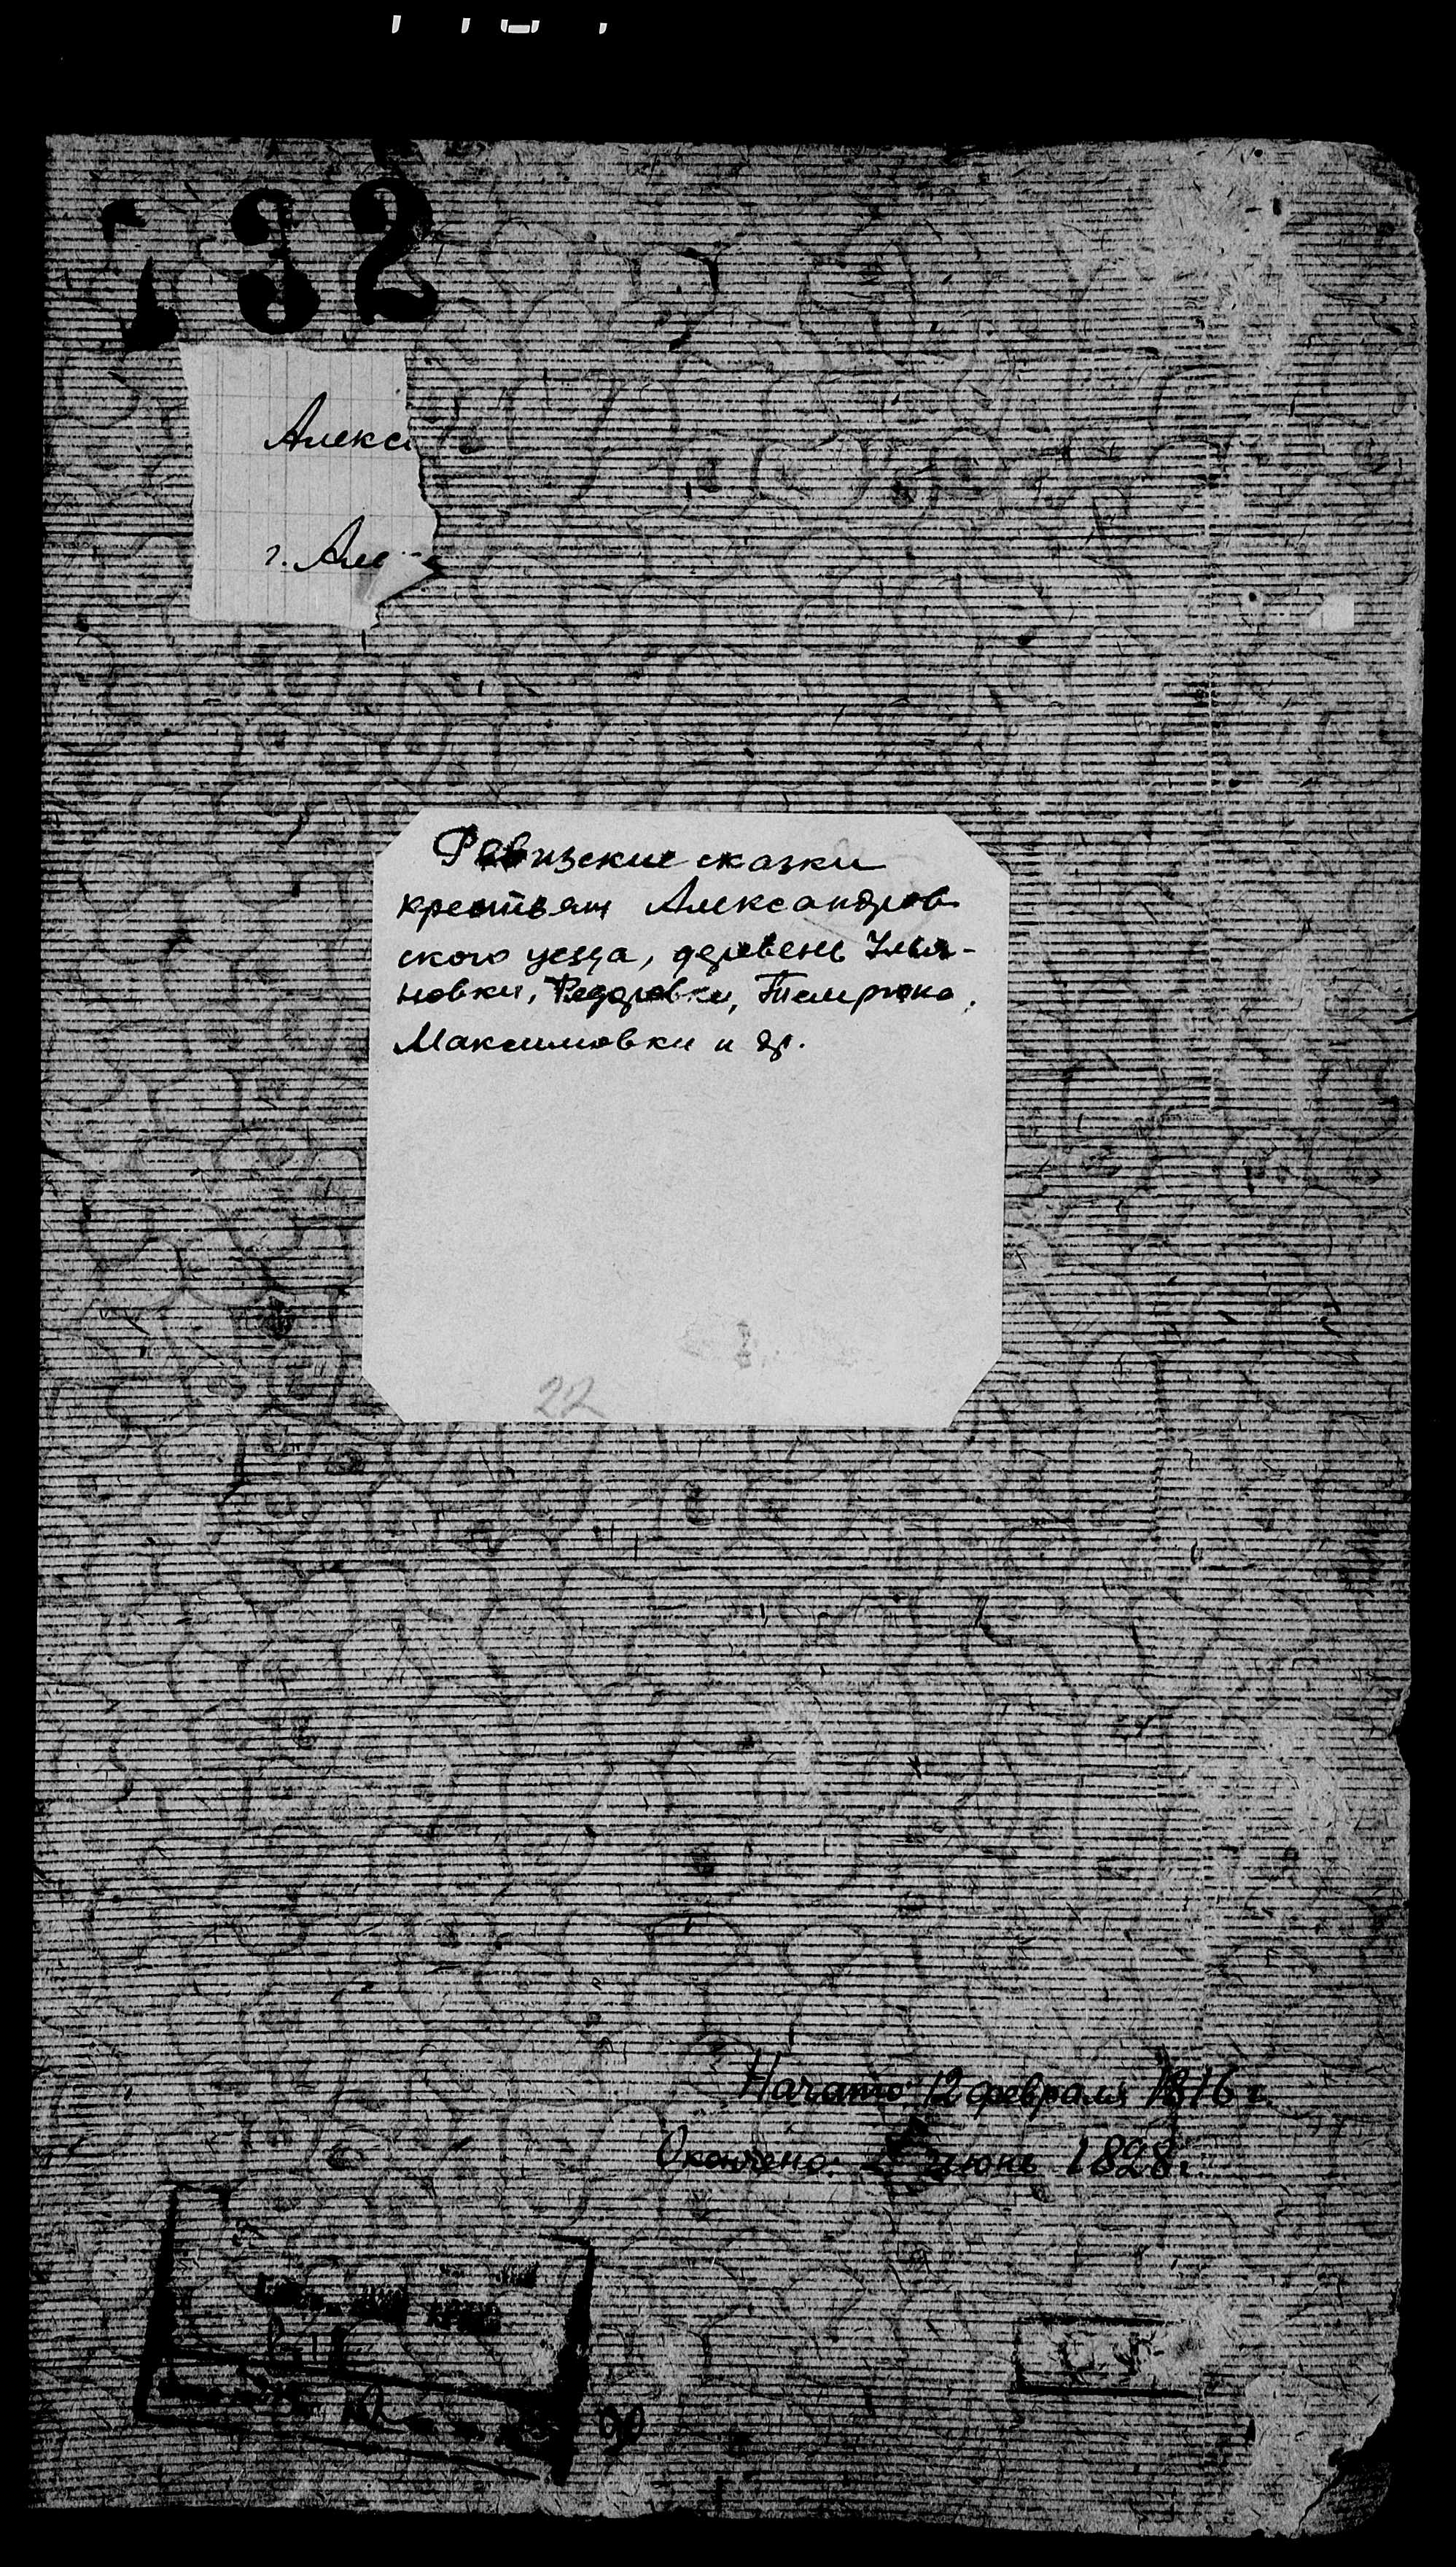 32
Алекс
г. Але
Ревизские сказки
крестьян Александров
ского уезда, деревень Улья-
новки, Федоровки, Темрюка,
Максимовки и др.
22
Начато: 12 февраля 1816 г.
Окончено: июнь 1828 г.